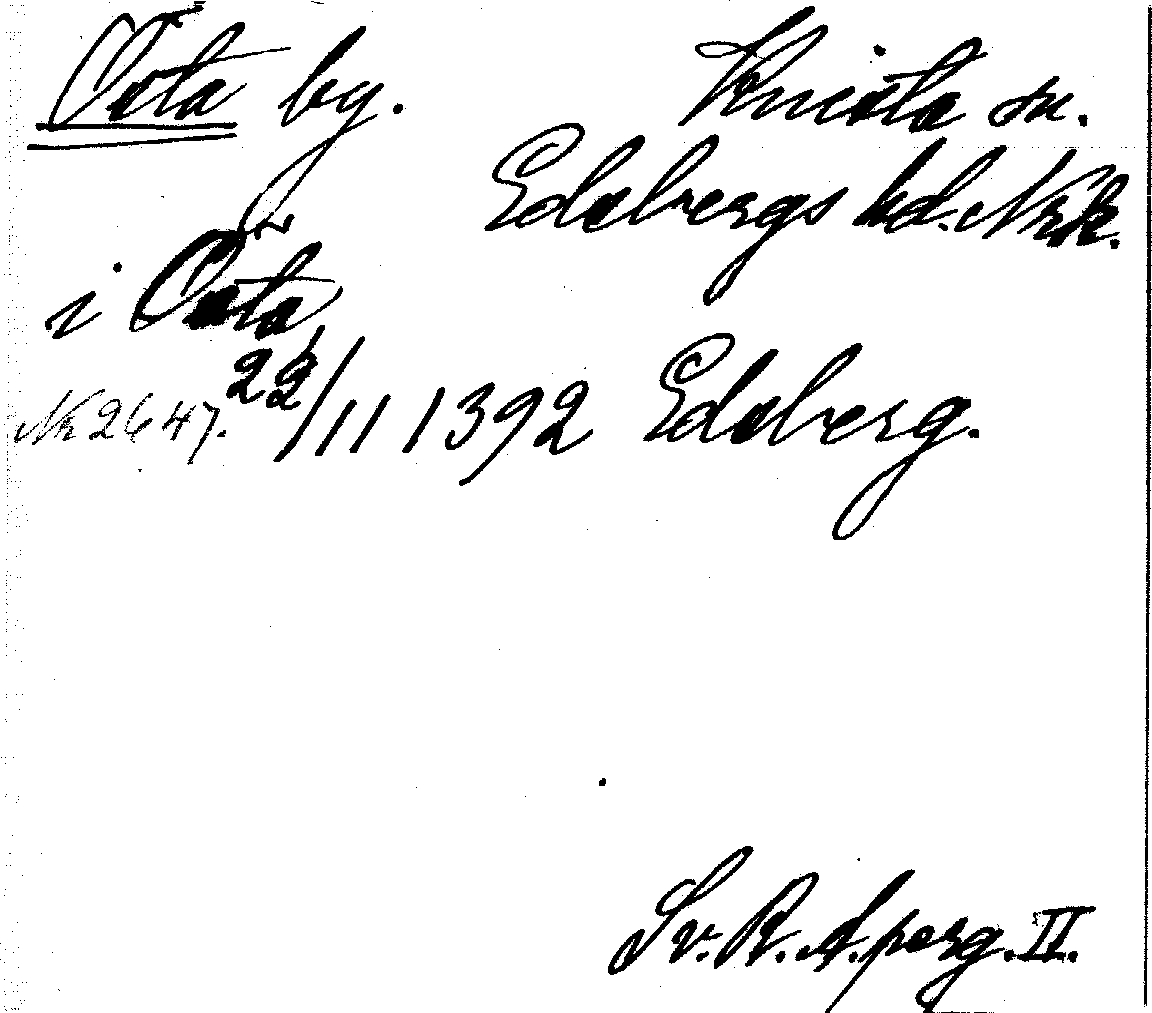 Östa by. Knista sn.
Edsbergs hd. Nrk.
i Östa
Nr 2647. 22/11 1392 Edsberg.
Sv. R. A. perg. II.